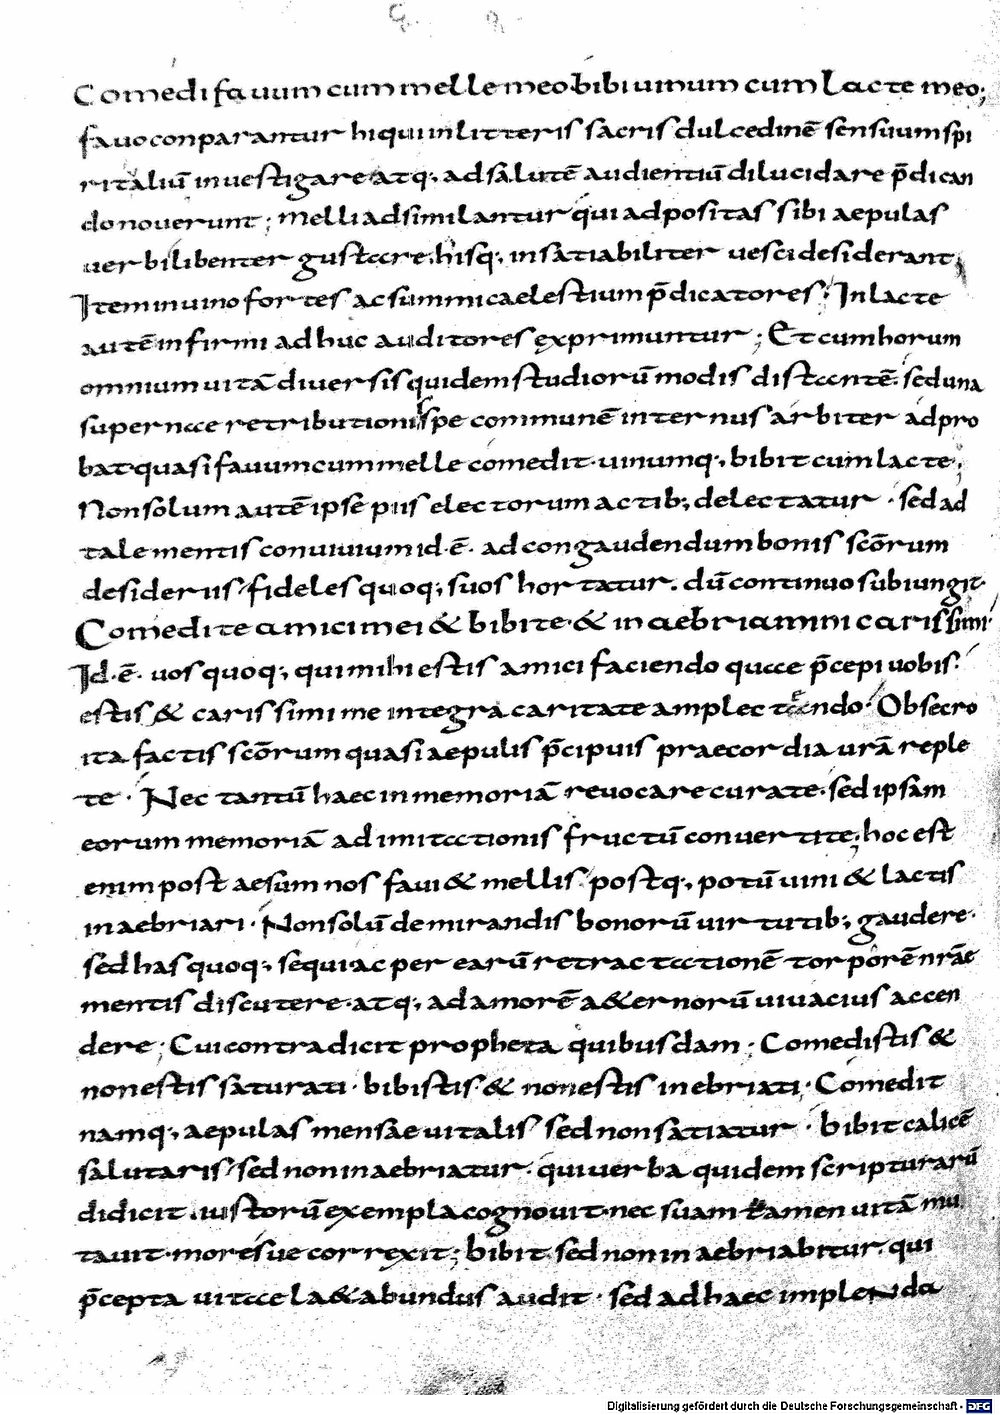 Comedi fauum cum melle meo bibi uinum cum lacte meo;
fauo conparantur hi qui in litteris sacris dulcedinē sensuum spi
ritaliū inuestigare atq; ad salutē audientiū dilucidare p̄dican
do nouerunt; melli adsimilantur qui ad positas sibi aepulas
uerbi libenter gustare. hisq; insatiabiliter uesci desiderant;
Item in uino fortes ac summi caelestium p̄dicatores. In lacte
autē infirmi adhuc auditores exprimuntur; Et cum horum
omnium uitā diuersis quidem studiorū modis distantē. sed una
supernae retributionis spe communē internus arbiter adpro
bat quasi fauum cum melle comedit. uinumq; bibit cum lacte;
Non solum autē ipse piis electorum actib; delectatur. sed ad
tale mentis conuiuium id. ē. ad congaudendum bonis scōrum
desideriis. fideles quoq; suos hortatur. dū continuo subiungit.
Comedite amici mei & bibite. & inaebriamini carissimi.
Id. ē. uos quoq; qui mihi estis amici faciendo quae p̄cepi uobis.
estis & carissimi me integra caritate amplectendo. Obsecro
ita factis scōrum quasi aepulis p̄cipuis praecordia urā reple
te. Nec tantū haec in memoriā reuocare curate. sed ipsam
eorum memoriā ad imitationis fructū conuertite. hoc est
enim post aesum nos faui & mellis. postq; potū uini & lactis
inaebriari. Non solū de mirandis bonorū uirtutib; gaudere.
sed has quoq; sequi ac per earū retractationē torporē nrāe
mentis discutere. atq; ad amorē a&ernorū uiuacius accen
dere; Cui contradicit propheta quibusdam; Comedistis &
non estis saturati. bibistis. & non estis inebriati; Comedit
namq; aepulas mensae uitalis sed non satiatur. bibit calicē
salutaris. sed non inaebriatur. qui uerba quidem scripturarū
didicit iustorū exempla cognouit. nec suam tamen uitā mu
tauit. moresue correxit; bibit. sed non inaebriabitur. qui
p̄cepta uitae la&abundus audit. sed ad haec implenda
Digitalisierung gefördert durch die Deutsche Forschungsgemeinschaft - DFG